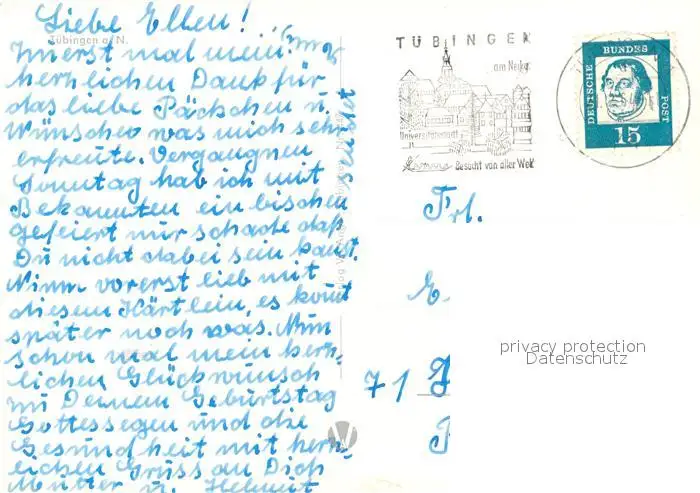 Liebe Ellen!
Tübingen a. N.
mal mein
herzlichen Dank für
das liebe Päckchen u.
Wünsche was mich sehr
erfreute. Vergangnen
Sonntag hab ich mit
Bekannten ein bischen
gefeiert nur schade daß
Du nicht dabei sein
Nimm vorerst lieb mit
diesem Kärtlein, es komt
später noch was. Nun
schon mal mein herz-
lichen Glückwunsch
zu Deinem Geburtstag
Gottessegen und die
Gesundheit mit herz-
lichen Gruss an Dich
Mutter u. Helmut
TÜBINGEN
am Neckar
Universitätsstadt
Besucht von aller Welt
DEUTSCHE
BUNDES
POST
15
Frl.
E.
71
privacy protection
Datenschutz